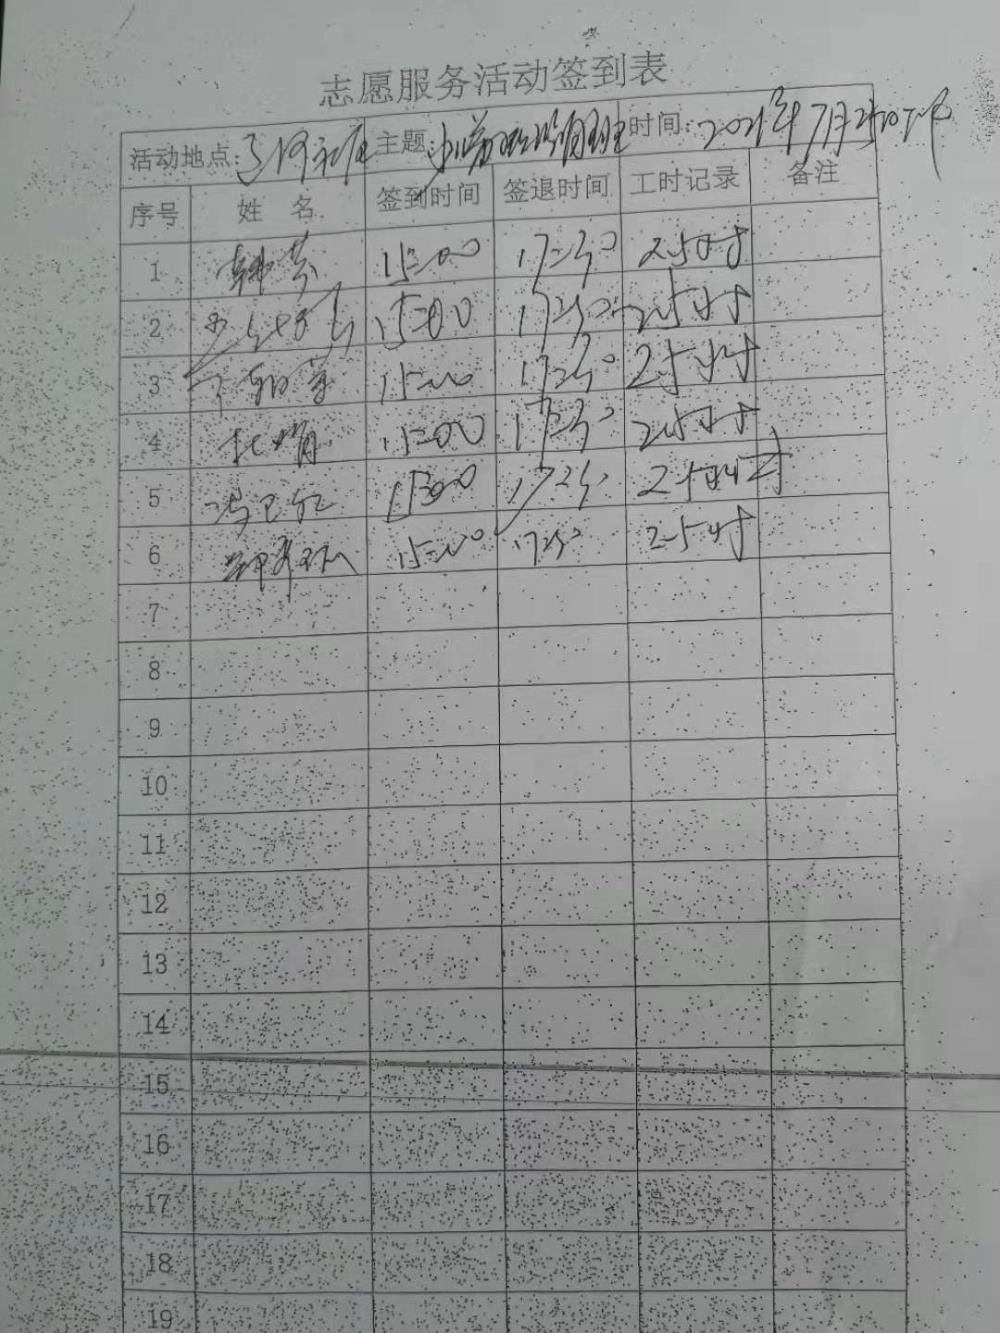 志愿服务活动签到表
活动地点: 主题: 时间: 2021年7月
序号 姓 名 签到时间 签退时间 工时记录 备注
1 韩芳 15:00 17:30 2.5时
2 15:00 17:30 2.5时
3 15:00 17:30 2.5时
4 杜娟 15:00 17:30 2.5时
5 15:00 17:30 2.5时
6 15:00 17:30 2.5时
7
8
9
10
11
12
13
14
15
16
17
18
19